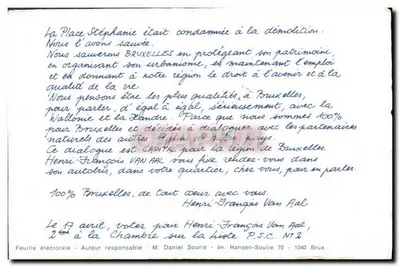 La Place Stéphanie était condamnée à la démolition.
Nous l'avons sauvée.
Nous sauverons BRUXELLES en protégeant son patrimoine,
en organisant son urbanisme, en maintenant l'emploi
et en donnant à notre région le droit à l'avenir et à la
qualité de la vie.
Nous pensons être les plus qualifiés, à Bruxelles,
pour parler, d'égal à égal, sérieusement, avec la
Wallonie et la Flandre. Parce que nous sommes 100%
pour Bruxelles et décidés à dialoguer avec les partenaires
naturels des autres régions du pays.
Ce dialogue est CAPITAL pour la région de Bruxelles.
Henri-François VAN AAL vous fixe rendez-vous dans
son autobus, dans votre quartier, chez vous, pour en parler.
100% Bruxelles, de tout cœur avec vous.
Henri-François Van Aal
Le 17 avril, votez pour Henri-François Van Aal,
2ème à la Chambre sur la liste P.S.C. N° 2
Feuille électorale - Auteur responsable : M. Daniel Souris - av. Hansen-Soulie 70 - 1040 Brux.